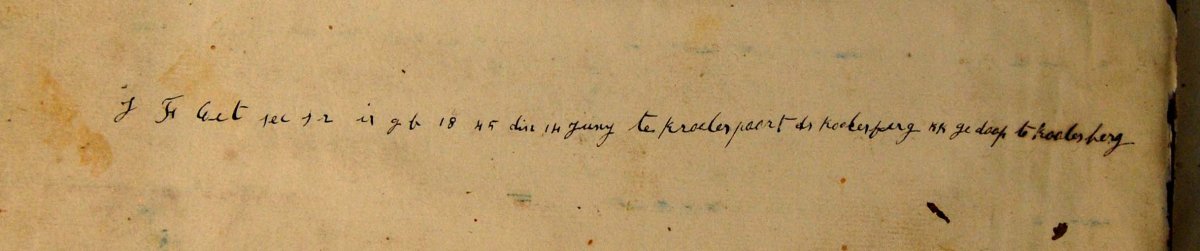 J F Aet see s r is g b 18 45 din 14 Juny te kroelespoort ds koelesperg en ge doop te koelesberg